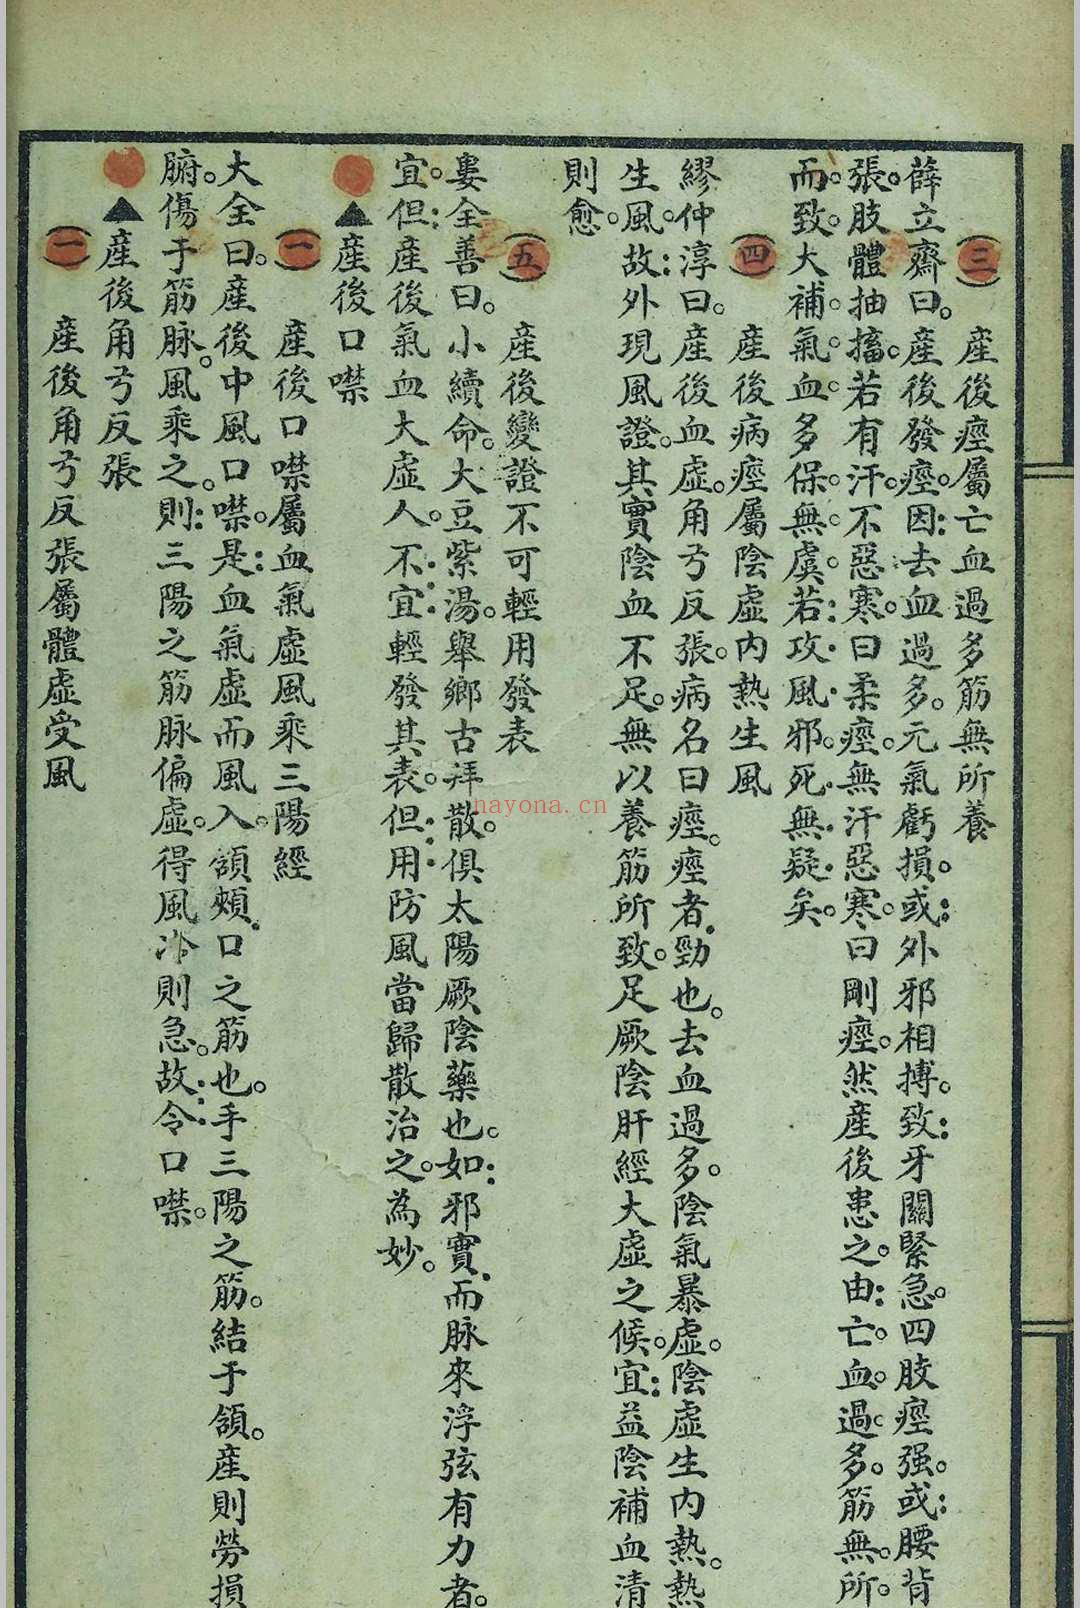 (三) 産後痙屬亡血過多筋無所養
薛立齋曰。産後發痙。因去血過多。元氣虧損。或外邪相搏。致牙關緊急。四肢痙强。或腰背
張。肢體抽搐。若有汗。不惡寒。曰柔痙。無汗惡寒。曰剛痙。然産後患之。由亡血過多。筋無所
而致。大補氣血。多保無虞。若攻風邪。死無疑矣。
(四) 産後病痙屬陰虛內熱生風
繆仲淳曰。産後血虛。角弓反張。病名曰痙。痙者勁也。去血過多。陰氣暴虛。陰虛生內熱。熱
生風。故外現風證。其實陰血不足。無以養筋所致。足厥陰肝經大虛之候。宜益陰補血清
則愈。
(五) 産後變證不可輕用發表
婁全善曰。小續命。大豆紫湯。舉鄉古拜散。俱太陽厥陰藥也。如邪實而脉來浮弦有力者。
宜。但産後氣血大虛人。不宜輕發其表。但用防風當歸散治之。為妙。
▲産後口噤
(一) 産後口噤屬血氣虛風乘三陽經
大全曰。産後中風口噤。是血氣虛而風入。頷頰口之筋也。手三陽之筋。結于頷。産則勞損
腑。傷于筋脉。風乘之。則三陽之筋脉偏虛。得風冷則急。故令口噤。
▲産後角弓反張
(一) 産後角弓反張屬體虛受風
nayona.cn